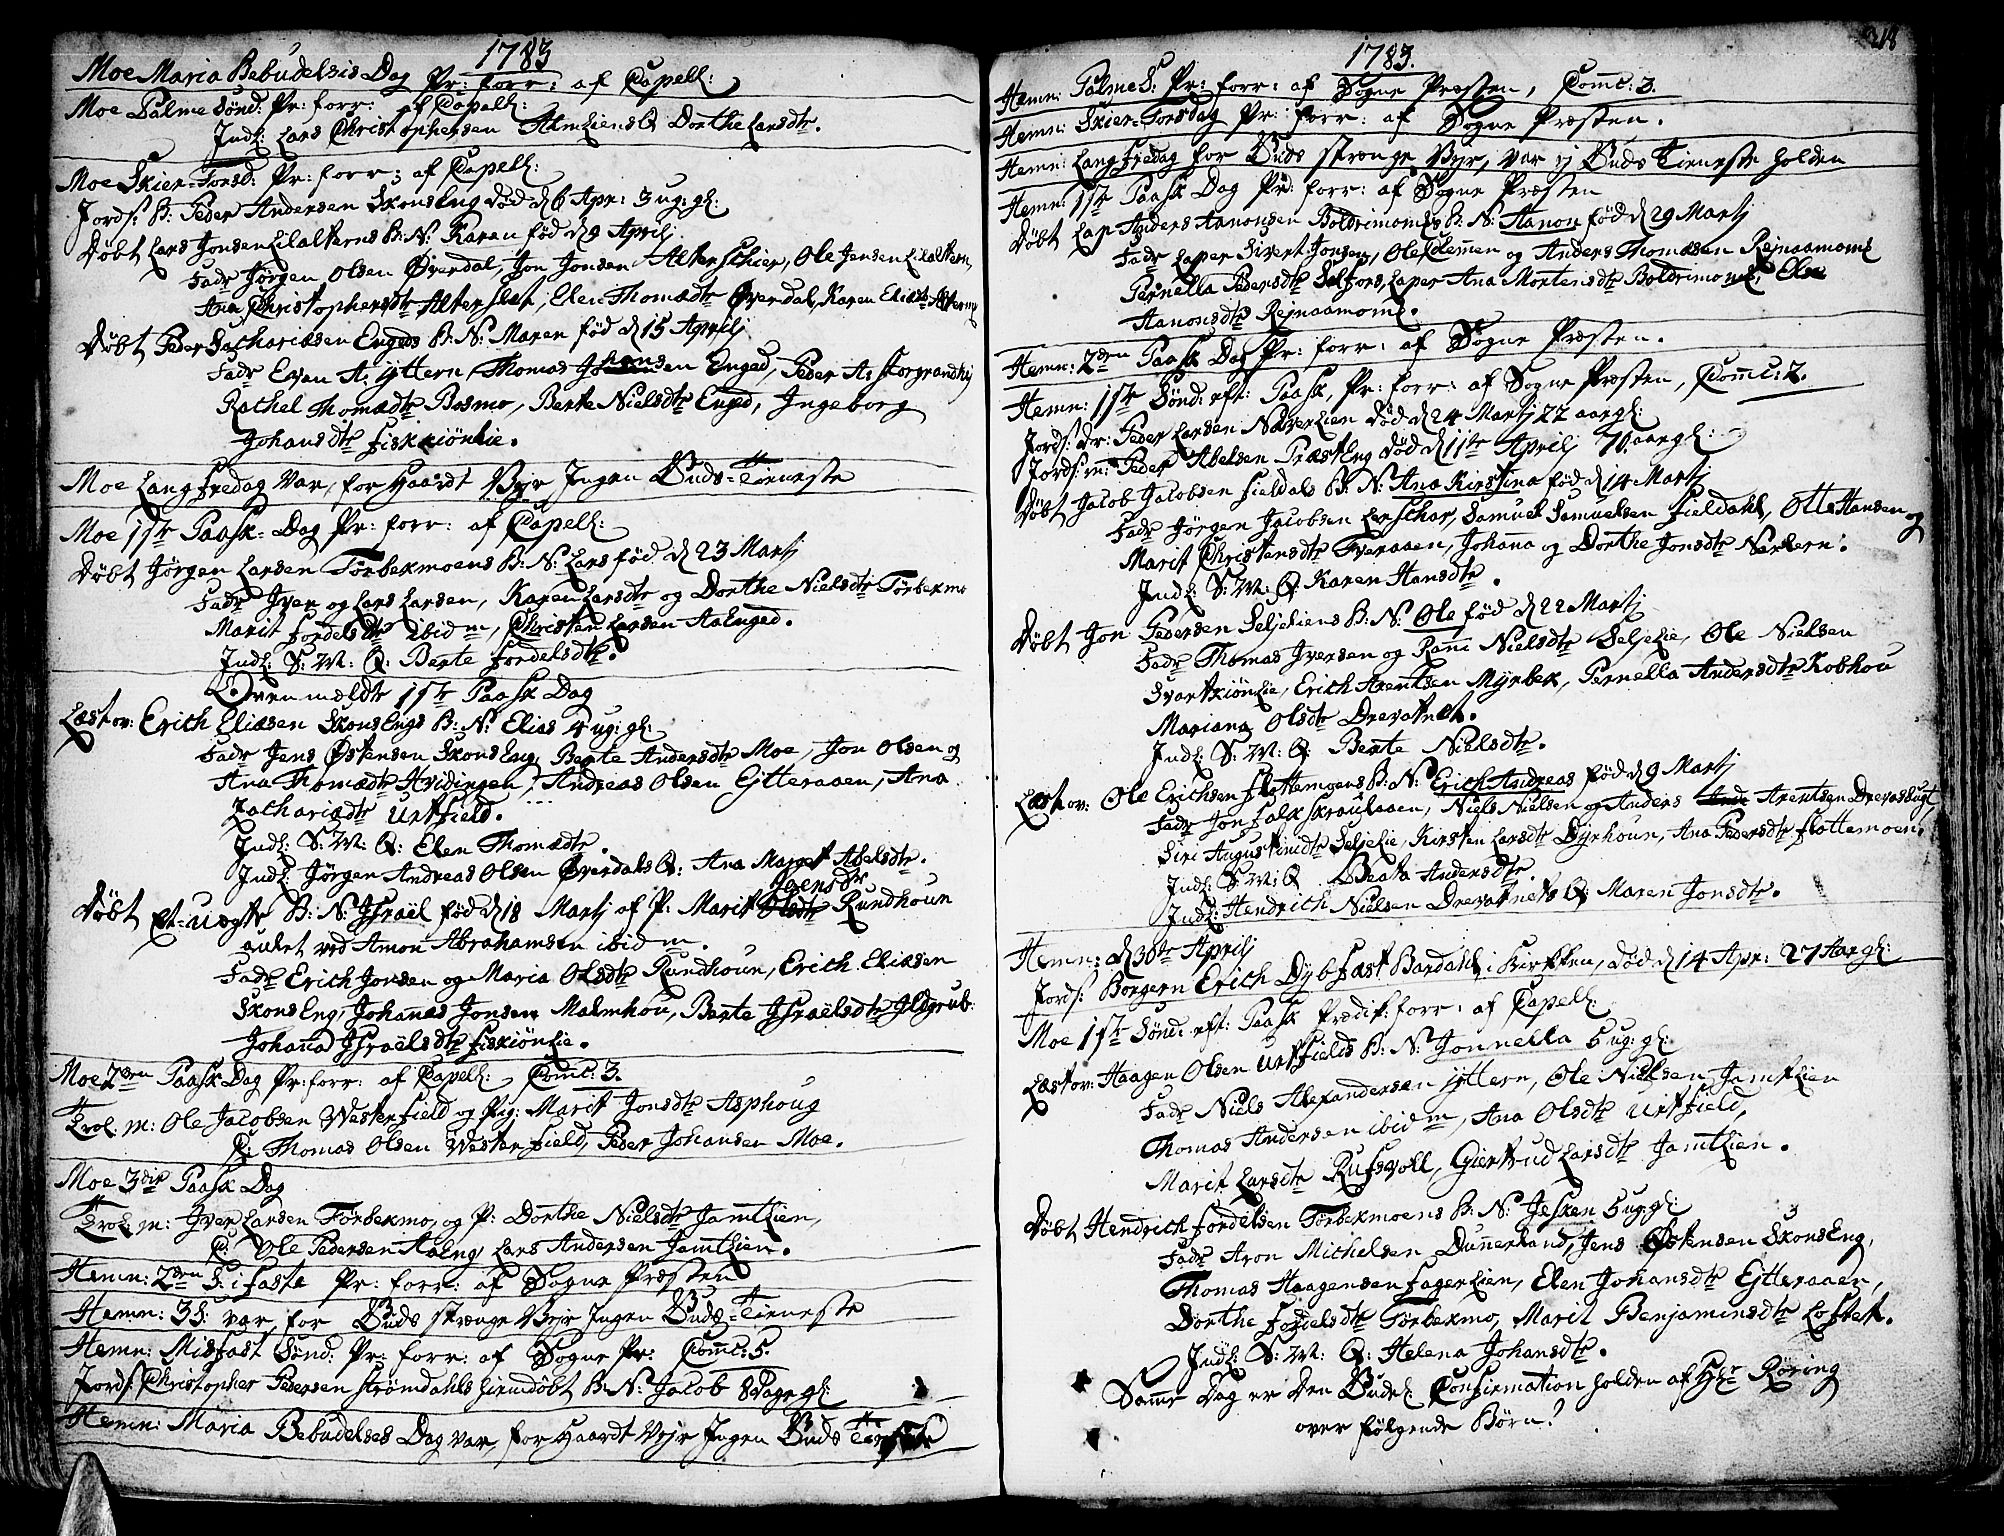 1783
Moe Maria Bebudelsis Dag Pr: forr: af Capell:
Moe Palme Sønd: Pr: forr: af Capell:
Indl: Lars Christophersen Q Dorthe Larsdtr.
Moe Skier-Torsd: Pr: forr: af Capell:
Jords: B: Peder Andersen SkonsEng død d 6 Apr: 3 ug: gl:
Døbt Lars Jonsen Lilalterns B: N: Karen fød d 9 Aprilj
Fadr Jørgen Olsen Øverdal, Jon Jonsen Alterschier, Ole Jensen Lilaltern,
Ana Christophersdtr, Elen Thomædtr Øverdal, Karen
Døbt Peder Sachariæsen Engeds B: N: Maren fød d 15 Aprilj
Fadr Even A: yttern, Thomas Johansen Enged, Peder A: Storgrandhj
Rachel Thomædtr Bosmo, Berte Nielsdtr Enged, Ingeborg
Johansdtr Fiskiønlie.
Moe Langfredag var, for Haardt Vejr Ingen Guds-Tieneste
Moe 1ste Paask-Dag Pr: forr: af Capell:
Døbt Jørgen Larsen Tørbekmoens B: N: Lars fød d 23 Martj
Fadr Iver og Lars Larsen, Karen Larsdtr og Dorthe Nielsdtr Tørbekmo
Marit Fordelsdtr ibidm, Christen Larsen AaEnged.
Indl: S: M: Q: Berte Fordelsdtr.
Ovenmeldte 1ste Paask Dag
Læst ov: Erich Eliæsen SkonsEngs B: N: Elias 4 ug: gl:
Fadr Jens Østensen SkonsEng, Berte Andersdtr Moe, Jon Olsen og
Ana Thomædtr Hvidingen, Andreas Olsen Ejtteraaen, Ana
Zachariædtr Urtfield.
Indl: S: M: Q: Elen Thomædtr.
Indl: Jørgen Andreas Olsen Øverdals Q: Ana Margt Abelsdtr.
Joensdtr
Døbt et uægte B: N: Israël fød d 18 Martj af P: Marit Olsdtr Rundhoun
aulet ved Amon Abrahamsen ibidm.
Fadr Erich Jonsen og Maria Olsdtr Rundhoun, Erich Eliæsen
SkonsEng, Johanes Jonsen Malmhou, Berte Israëlsdtr Ildgrub.
Johana Israëlsdtr Fiskiønlie.
Moe 2den Paask Dag Pr: forr: af Capell: Comc: 3.
Trol: M: Ole Jacobsen Westerfield og Pig: Marit Jonsdtr Asphoug
C: Thomas Olsen Westerfield, Peder Johansen Moe.
Moe 3die Paask Dag
Trol: M: Iver Larsen Tørbekmo, og P: Dorthe Nielsdtr Jamtlien,
C: Ole Pedersen AaEng, Lars Andersen Jamtlien.
Hemn: 2den S: i faste Pr: forr: af Sogne Præsten
Hemn: 3 S: var, for Guds strenge Vejr Ingen Guds-Tieneste
Hemn: Midfast Sønd: Pr: forr: af Sogne Pr: Comc: 5.
Jords: Christopher Pedersen Strømdahls hiemdøbt B: N: Jacob 8 Dage gl:
Hemn: Maria Bebudelses Dag var, for Haardt Vejr Ingen Guds Tieneste
218
1783.
Hemn: PalmeS: Pr: forr: af Sogne Præsten, Comc: 3.
Hemn: Skier-Torsdag Pr: forr: af Sogne Præsten.
Hemn: Langfredag for Guds strenge Vejr, var ej Guds Tieneste holden
Hemn: 1ste Paask Dag Pr: forr: af Sogne Præsten
Døbt Lap Anders Aanonsen Boldrimomes B: N: Aanon fød d 29 Martj
Fadr Laper Sivert Jonsen, Ole Clemen og Anders Thomæsen Rejnaamome
Pernella Pedersdtr Salfors, Laper Ana Mortensdtr Boldrimome, Elen
Aanonsdtr Rejnaamome.
Hemn: 2den Paask Dag Pr: forr: af Sogne Præsten.
Hemn: 1ste Sønd: eft: Paask, Pr: forr: af Sogne Præsten, Comc: 2.
Jords: Dr: Peder Larsen Næverlien død d 24 Martj 22 aar gl:
Jords: M: Peder Abelsen PræstEng død d 11te Aprilj 70. aar gl:
Døbt Jacob Jacobsen Fieldals B: N: Ana Kirstina fød d 14 Martj
Fadr Jørgen Jacobsen Lerschar, Samuel Samuelsen Fieldahl, Otte Hansen og
Marit Christensdtr Tveraaen, Johana og Dorthe Jonsdtr Nerlern.
Indl: S: M: Q: Karen Hansdtr.
Døbt Jon Pedersen Seljeliens B: N: Ole fød d 22 Martj
Fadr Thomas Iversen og Rani Nielsdtr Seljelie, Ole Nielsen
Svartkiønlie, Erich Arentsen Myrbek, Pernella Andersdtr Kobhou
Mariana Olsdtr Drevatnet.
Indl: S: M: Q: Berte Nielsdtr.
Læst ov: Ole Erichsen Flottemoens B: N: Erich Andreas fød d 9 Martj
Fadr Jon Falk Skraulaaen, Niels Nielsen og Anders Arentsen
Siri Augustinidtr Seljelie, Kirsten Larsdtr Dyrhoun, Ana Pedersdtr Flottemoen.
Indl: S: M: Q Beata Andersdtr.
Indl: Hendrich Nielsen Drevatnets Q: Maren Jonsdtr.
Hemn: d 30te Aprilj
Jords: Borgern Erich Dybfæst Bardahl i Kirkken, død d 14 Apr: 27 Aar gl:
Moe 1ste Sønd: eft: Paask Prædik: forr: af Capell:
Læst ov: Haagen Olsen Urtfields B: N: Jonnella 6 ug: gl:
Fadr Niels Alexandersen yttern, Ole Nielsen Jamtlien
Thomas Andersen ibidm, Ana Olsdtr Urtfield,
Marit Larsdtr Rufsvoll, Giertrud Larsdtr Jamtlien.
Døbt Hendrich Fordelsen Tørbekmoens B: N: Jesken 6 ug: gl:
Fadr Aron Michelsen Dunerland, Jens Østensen SkonsEng,
Thomas Haagensen Fagerlien, Elen Johansdtr Ejtteraaen,
Dorthe Fordelsdtr Tørbekmo, Marit Benjaminsdtr Loftet.
Indl: S: M: Q: Helena Johansdtr.
Same Dag er den Gudel: Confirmation holden af Hr Røring
over følgende Børn: